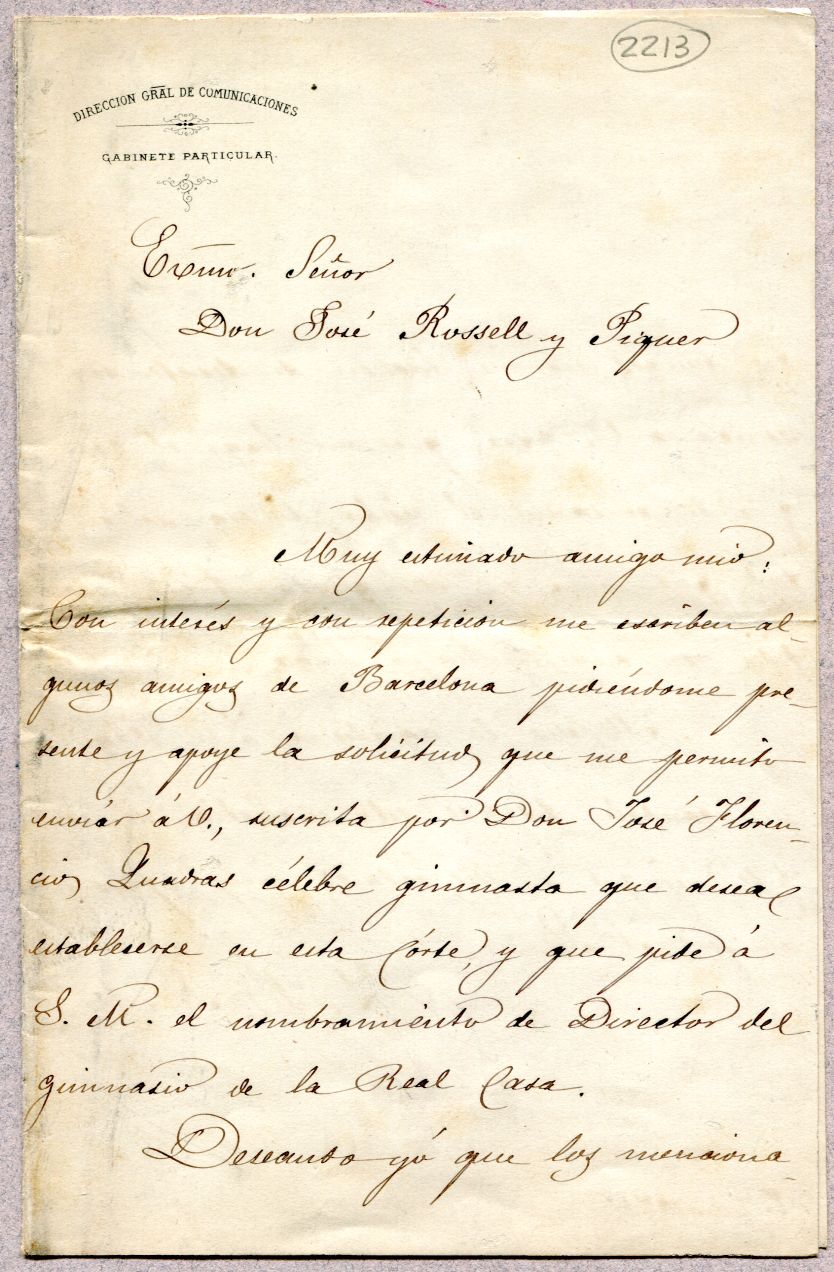 2213
DIRECCION GRAL DE COMUNICACIONES
GABINETE PARTICULAR.
Exmo. Señor
Don José Rossell y Piquer
Muy estimado amigo mio:
Con interés y con repeticion me escriben al-
gunos amigos de Barcelona pidiéndome pre-
sente y apoye la solicitud que me permito
enviár á V., suscrita por Don José Floren-
cio Quadras célebre gimnasta que desea
establecerse en esta Córte, y que pide á
S. M. el nombramiénto de Director del
gimnasio de la Real Casa.
Deseando yó que los menciona-